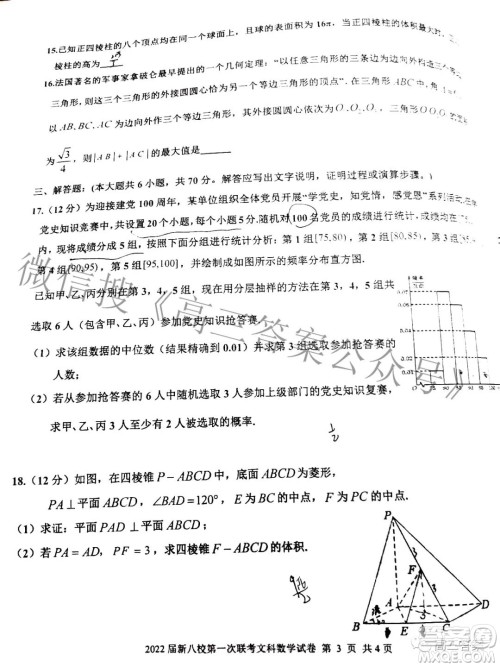 15.已知正四棱柱的八个顶点均在同一个球面上，且球的表面积为16π，当正四棱柱的体积最大时，正四
棱柱的高为
16.法国著名的军事家拿破仑最早提出的一个几何定理：“以任意三角形的三条边为边向外构造三个等边
三角形，则这三个三角形的外接圆圆心恰为另一个等边三角形的顶点”．在三角形ABC中，
以AB,BC,AC为边向外作三个等边三角形，其外接圆圆心依次为O₁,O₂,O₃，若三角形O₁O₂O₃的面积
为√3/4，则|AB|+|AC|的最大值是
三、解答题：(本大题共6小题，共70分。解答应写出文字说明，证明过程或演算步骤。)
17.(12分)为迎接建党100周年，某单位组织全体党员开展“学党史，知党情，感党恩”系列活动，在
党史知识竞赛中，共设置20个小题，每个小题5分.随机对100名党员的成绩进行统计，成绩均在
内，现将成绩分成5组，按照下面分组进行统计分析：第1组[75,80)，第2组[80,85)，第3
第4组[90,95)，第5组[95,100]，并绘制成如图所示的频率分布直方图.
已知甲、乙、丙分别在第3，4，5组，现在用分层抽样的方法在第3，4，5组
选取6人（包含甲、乙、丙）参加党史知识抢答赛.
（1）求该组数据的中位数（结果精确到0.01）并求第3组选取参加抢答赛的
人数；
（2）若从参加抢答赛的6人中随机选取3人参加上级部门的党史知识复赛，
求甲、乙、丙3人至少有2人被选取的概率.
1/2
18.(12分)如图，在四棱锥P－ABCD中，底面ABCD为菱形，
PA⊥平面ABCD，∠BAD=120°，E,F分别为BC,PC的中点.
（1）求证：平面PAD⊥平面AEF；
（2）若PA=AD，PF=3，求四棱锥F－ABCD的体积.
P
F
A
D
B
E
C
2022届新八校第一次联考文科数学试卷 第 3 页 共 4 页
微信搜《高三答案公众号》